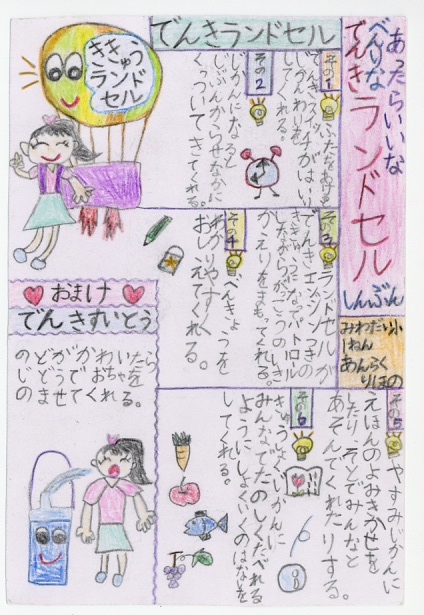 あったらいいな
べんりな
でんき
ランドセル
しんぶん
みわだい小
1ねん
あんらく
りほの
でんきランドセル
その1
ふたをあけると
でんきスイッチがはいり
じかんわりを
してくれる。
その2
じかんになると
じぶんからせなかに
くっついてきてくれる。
ききゅう
ランド
セル
その3
ランドセルが
でんきエンジンつきの
ききゅうになってパトロール
しながらがっこうのいき
かえりをまもってくれる。
その4
べんきょうを
わかりやすく
おしえてくれる。
その5
やすみじかんに
えほんのよみきかせを
したり、そとでみんなと
あそんでくれたりする。
その6
きゅうしょくじかんに
みんなでたのしくたべれる
ようにしょくいくのはなしを
してくれる。
おまけ
でんきすいとう
のどがかわいたら
じどうでおちゃを
のませてくれる。